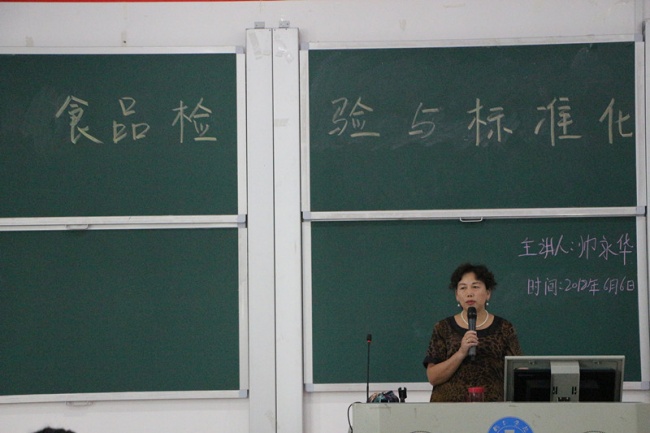 食品检验与标准化
主讲人:帅永华
时间:2012年6月6日